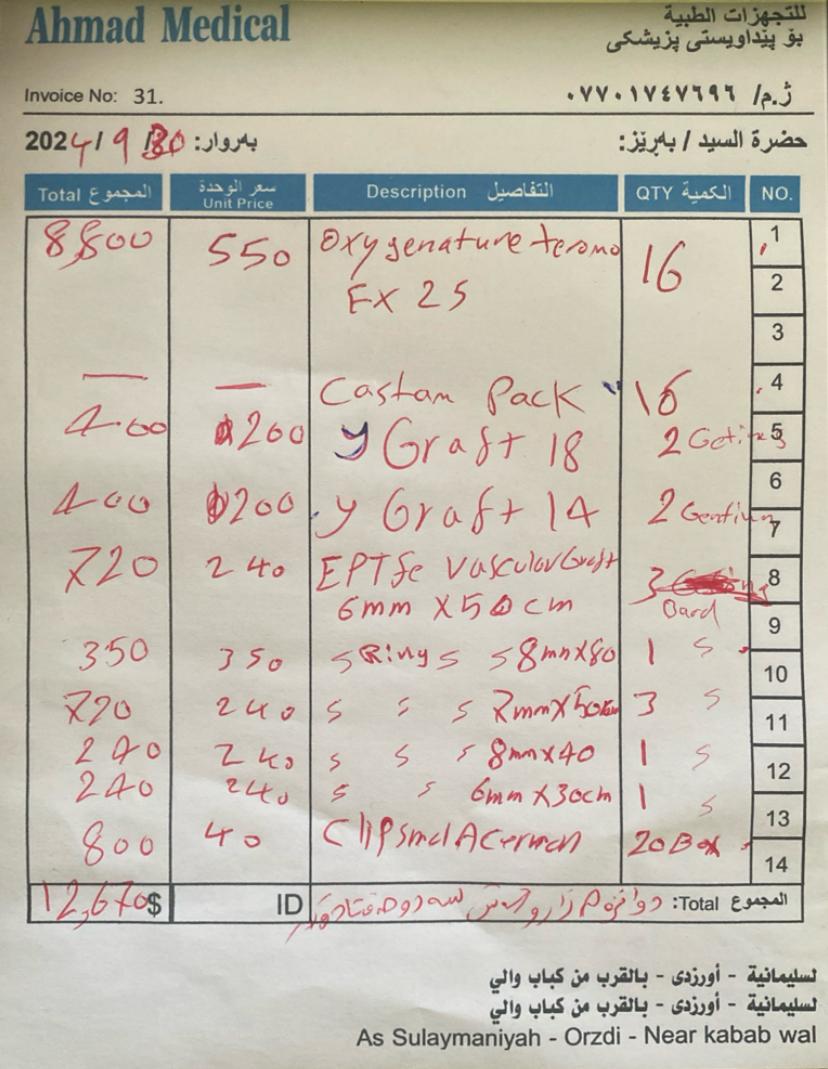 Ahmad Medical
للتجهزات الطبية
بۆ پێداویستی پزیشکی
Invoice No: 31.
ژ.م/ ٠٧٧٠١٧٤٧٦٩٦
حضرة السيد / بەڕێز:
بەروار: 2024/9/30
المجموع Total سعر الوحدة Unit Price Description التفاصيل QTY الكمية NO.
8,800 550 Oxygenature terumo 16 1
FX 25 2
3
— — Castam Pack " 16 4
400 200 y Graft 18 2 Geting 5
6
400 200 y Graft 14 2 7
720 240 EPTfe VascularGraft 3 8
6mm X50cm Bard 9
350 350 s Ring s s 8mmx80 1 s 10
720 240 s s s 7mmX50cm 3 s 11
240 240 s s s 8mmx40 1 s 12
240 240 s s 6mm X30cm 1 s 13
800 40 Clip 20 Box 14
12,670$ ID المجموع Total:
لسليمانية - أورزدى - بالقرب من كباب والي
لسليمانية - أورزدى - بالقرب من كباب والي
As Sulaymaniyah - Orzdi - Near kabab wal